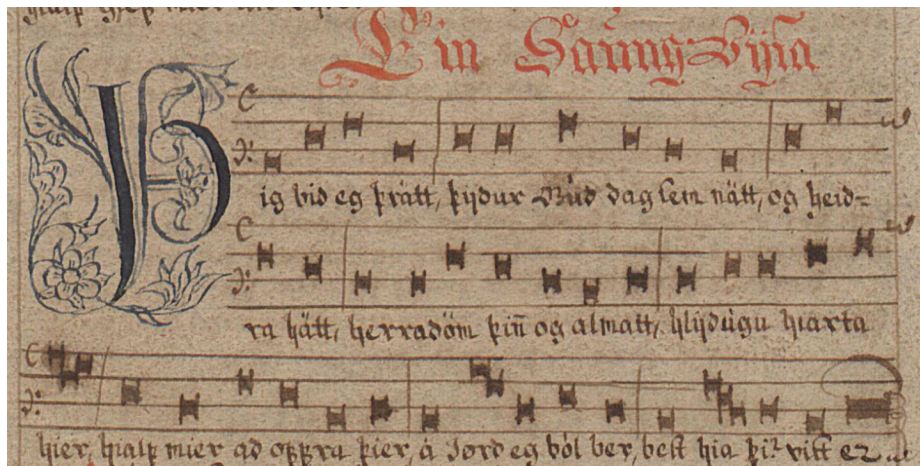 Ein Saung Vijsa
Þig bid eg þrátt, þijdur Gud dag sem nátt, og heid=
ra hátt, herradóm þiñ og almátt, hlijdugu hiarta
hier, hialp mier ad oppra þier, á Jórd eg ból ber, best hia þr vist er